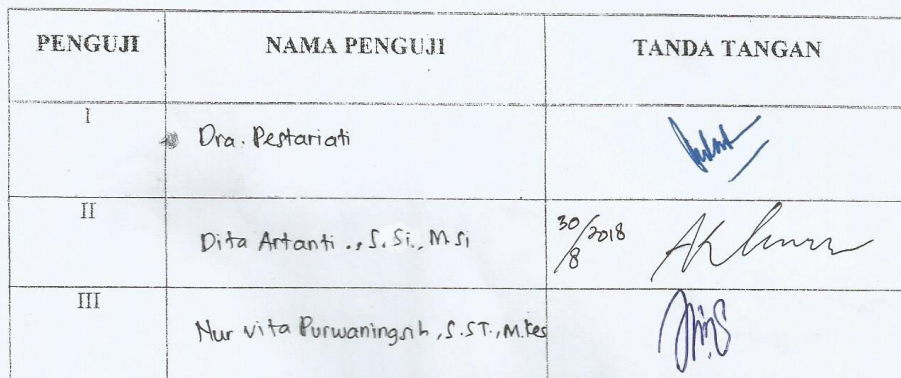 PENGUJI NAMA PENGUJI TANDA TANGAN
I Dra. Pestariati
II Dita Artanti ., S. Si., M.si 30/8/2018
III Nur vita Purwaningsih, S.ST., M.Kes